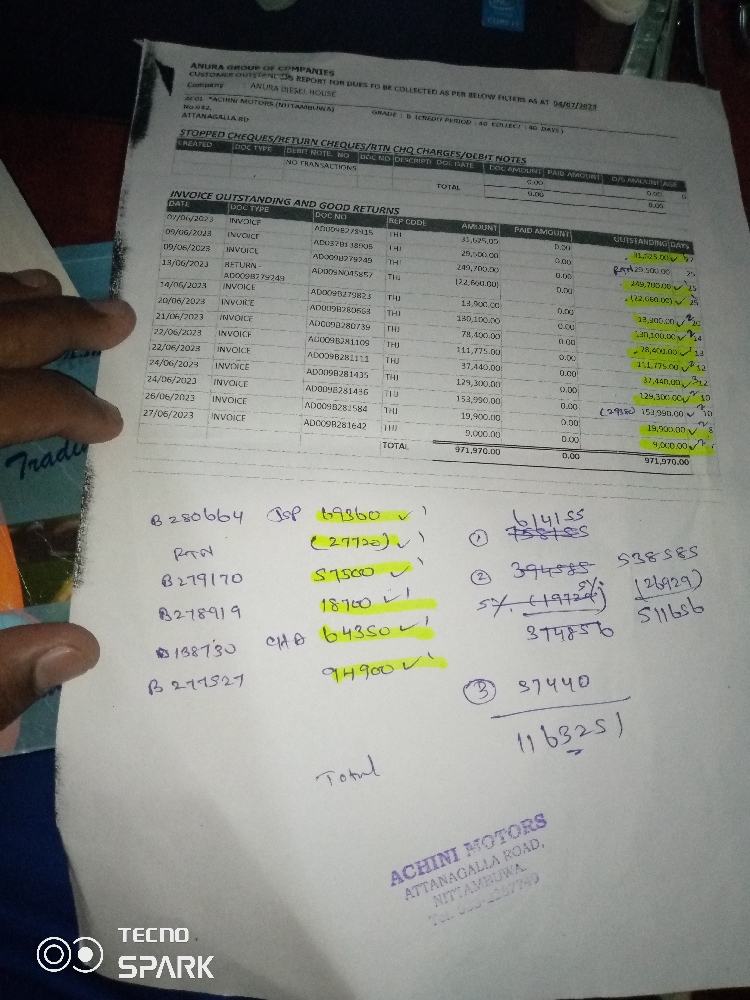 ANURA GROUP OF COMPANIES
CUSTOMER OUTSTANDING REPORT FOR DUES TO BE COLLECTED AS PER BELOW FILTERS AS AT 04/07/2023
Company : ANURA DIESEL HOUSE
ACHINI MOTORS (NITTAMBUWA) GRADE : B (CREDIT PERIOD : 40 COLLECT : 40 DAYS)
ATTANAGALLA RD
STOPPED CHEQUES/RETURN CHEQUES/RTN CHQ CHARGES/DEBIT NOTES
CREATED DOC TYPE DEBIT NOTE. NO DOC NO DESCRIPTI DOC DATE DOC AMOUNT PAID AMOUNT O/S AMOUNT AGE
NO TRANSACTIONS 0.00 0.00 0
TOTAL 0.00 0.00
INVOICE OUTSTANDING AND GOOD RETURNS
DATE DOC TYPE DOC NO REP CODE AMOUNT PAID AMOUNT OUTSTANDING DAYS
07/06/2023 INVOICE AD009B278915 THJ 31,625.00 0.00 31,625.00 ✓ 27
09/06/2023 INVOICE AD037B138906 THJ 29,500.00 0.00 RTN 29,500.00 25
09/06/2023 INVOICE AD009B279249 THJ 249,700.00 0.00 249,700.00 ✓ 25
13/06/2023 RETURN - AD009B279249 AD009N045857 THJ (22,660.00) 0.00 (22,660.00) ✓ 25
14/06/2023 INVOICE AD009B279823 THJ 13,900.00 0.00 13,900.00 ✓ 20
20/06/2023 INVOICE AD009B280663 THJ 130,100.00 0.00 130,100.00 ✓ 14
21/06/2023 INVOICE AD009B280739 THJ 78,400.00 0.00 78,400.00 ✓ 13
22/06/2023 INVOICE AD009B281109 THJ 111,775.00 0.00 111,775.00 ✓ 12
22/06/2023 INVOICE AD009B281111 THJ 37,440.00 0.00 37,440.00 ✓ 12
24/06/2023 INVOICE AD009B281435 THJ 129,300.00 0.00 129,300.00 ✓ 10
24/06/2023 INVOICE AD009B281436 THJ 153,990.00 0.00 153,990.00 ✓ 10
26/06/2023 INVOICE AD009B281584 THJ 19,900.00 0.00 19,900.00 ✓ 8
27/06/2023 INVOICE AD009B281642 THJ 9,000.00 0.00 9,000.00 ✓
TOTAL 971,970.00 0.00 971,970.00
B 280664 JSP 69360 ✓
RTN (27720) ✓
B 279170 57500 ✓
B 278919 18700 ✓
B138730 CHA 64350 ✓
B 277527 94900 ✓
Total
614155
① 758155
② 394585 538585
5% (19729) 5% (26929)
374856 511656
③ 37440
1163251
ACHINI MOTORS
ATTANAGALLA ROAD,
NITTAMBUWA.
TECNO
SPARK